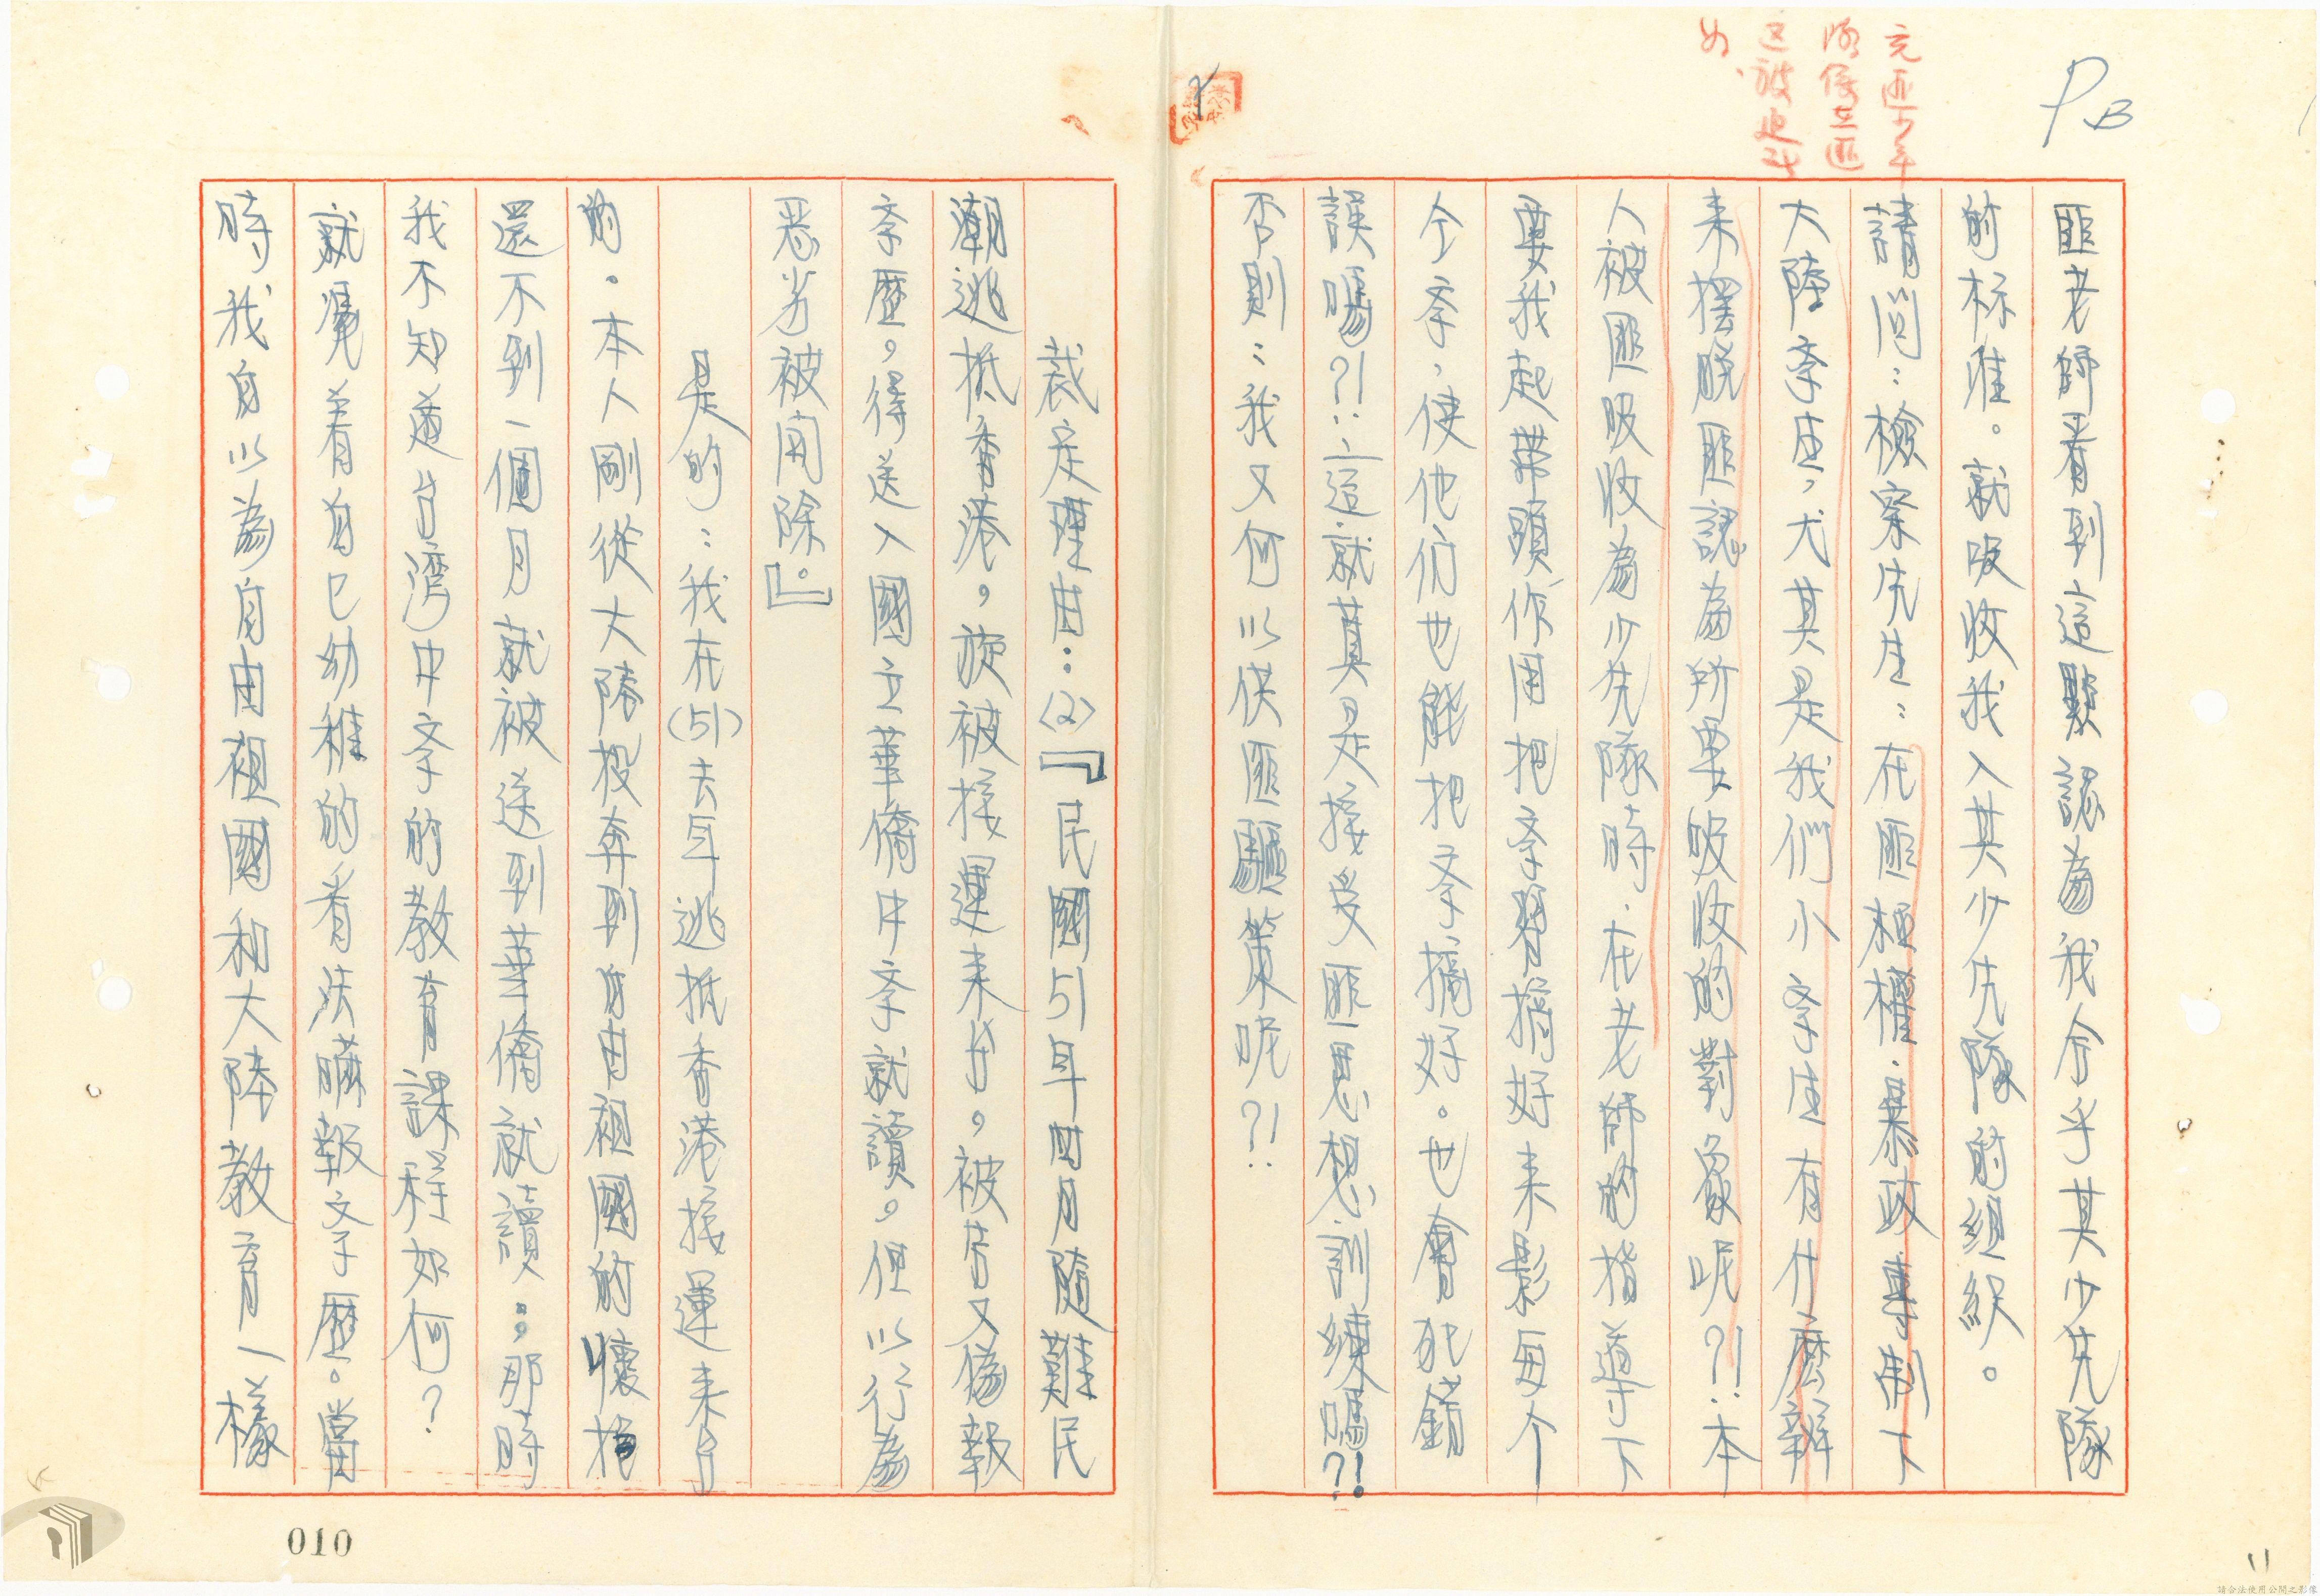 PB
充匪少年
隊係在匪
区被迫
匪老師看到這點認為我合乎其少先隊
的标准。就吸收我入其少先隊的組織。
請问：檢察先生：在匪極權．暴政專制下
大陸学生，尤其是我们小学生有什麽辦
来擺脱匪認為所要吸收的對象呢？！本
人被匪吸收為少先隊時．在老師的指導下
要我起带頭作用把学習搞好来影 每个
仝学，使他们也能把学搞好。也會犯錯
誤嗎？！：這就真是接受匪思想訓練嗎？！
否則：我又何以供匪驅策呢？！
裁定理由：(2)『民國51年四月隨難民
潮逃抵香港，旋被接運来台，被告又偽報
学歷，得送入國立華僑中学就讀，但以行為
恶劣被開除。』
是的：我在(51)去年逃抵香港接運来台
的。本人剛從大陸投奔到自由祖國的懷抱
還不到一個月就被送到華僑就讀：那時
我不知道台湾中学的教育課程如何？
就憑着自己幼稚的看法瞞報学歷。當
時我自以為自由祖國和大陸教育一樣
010
11
請合法使用公開之影像